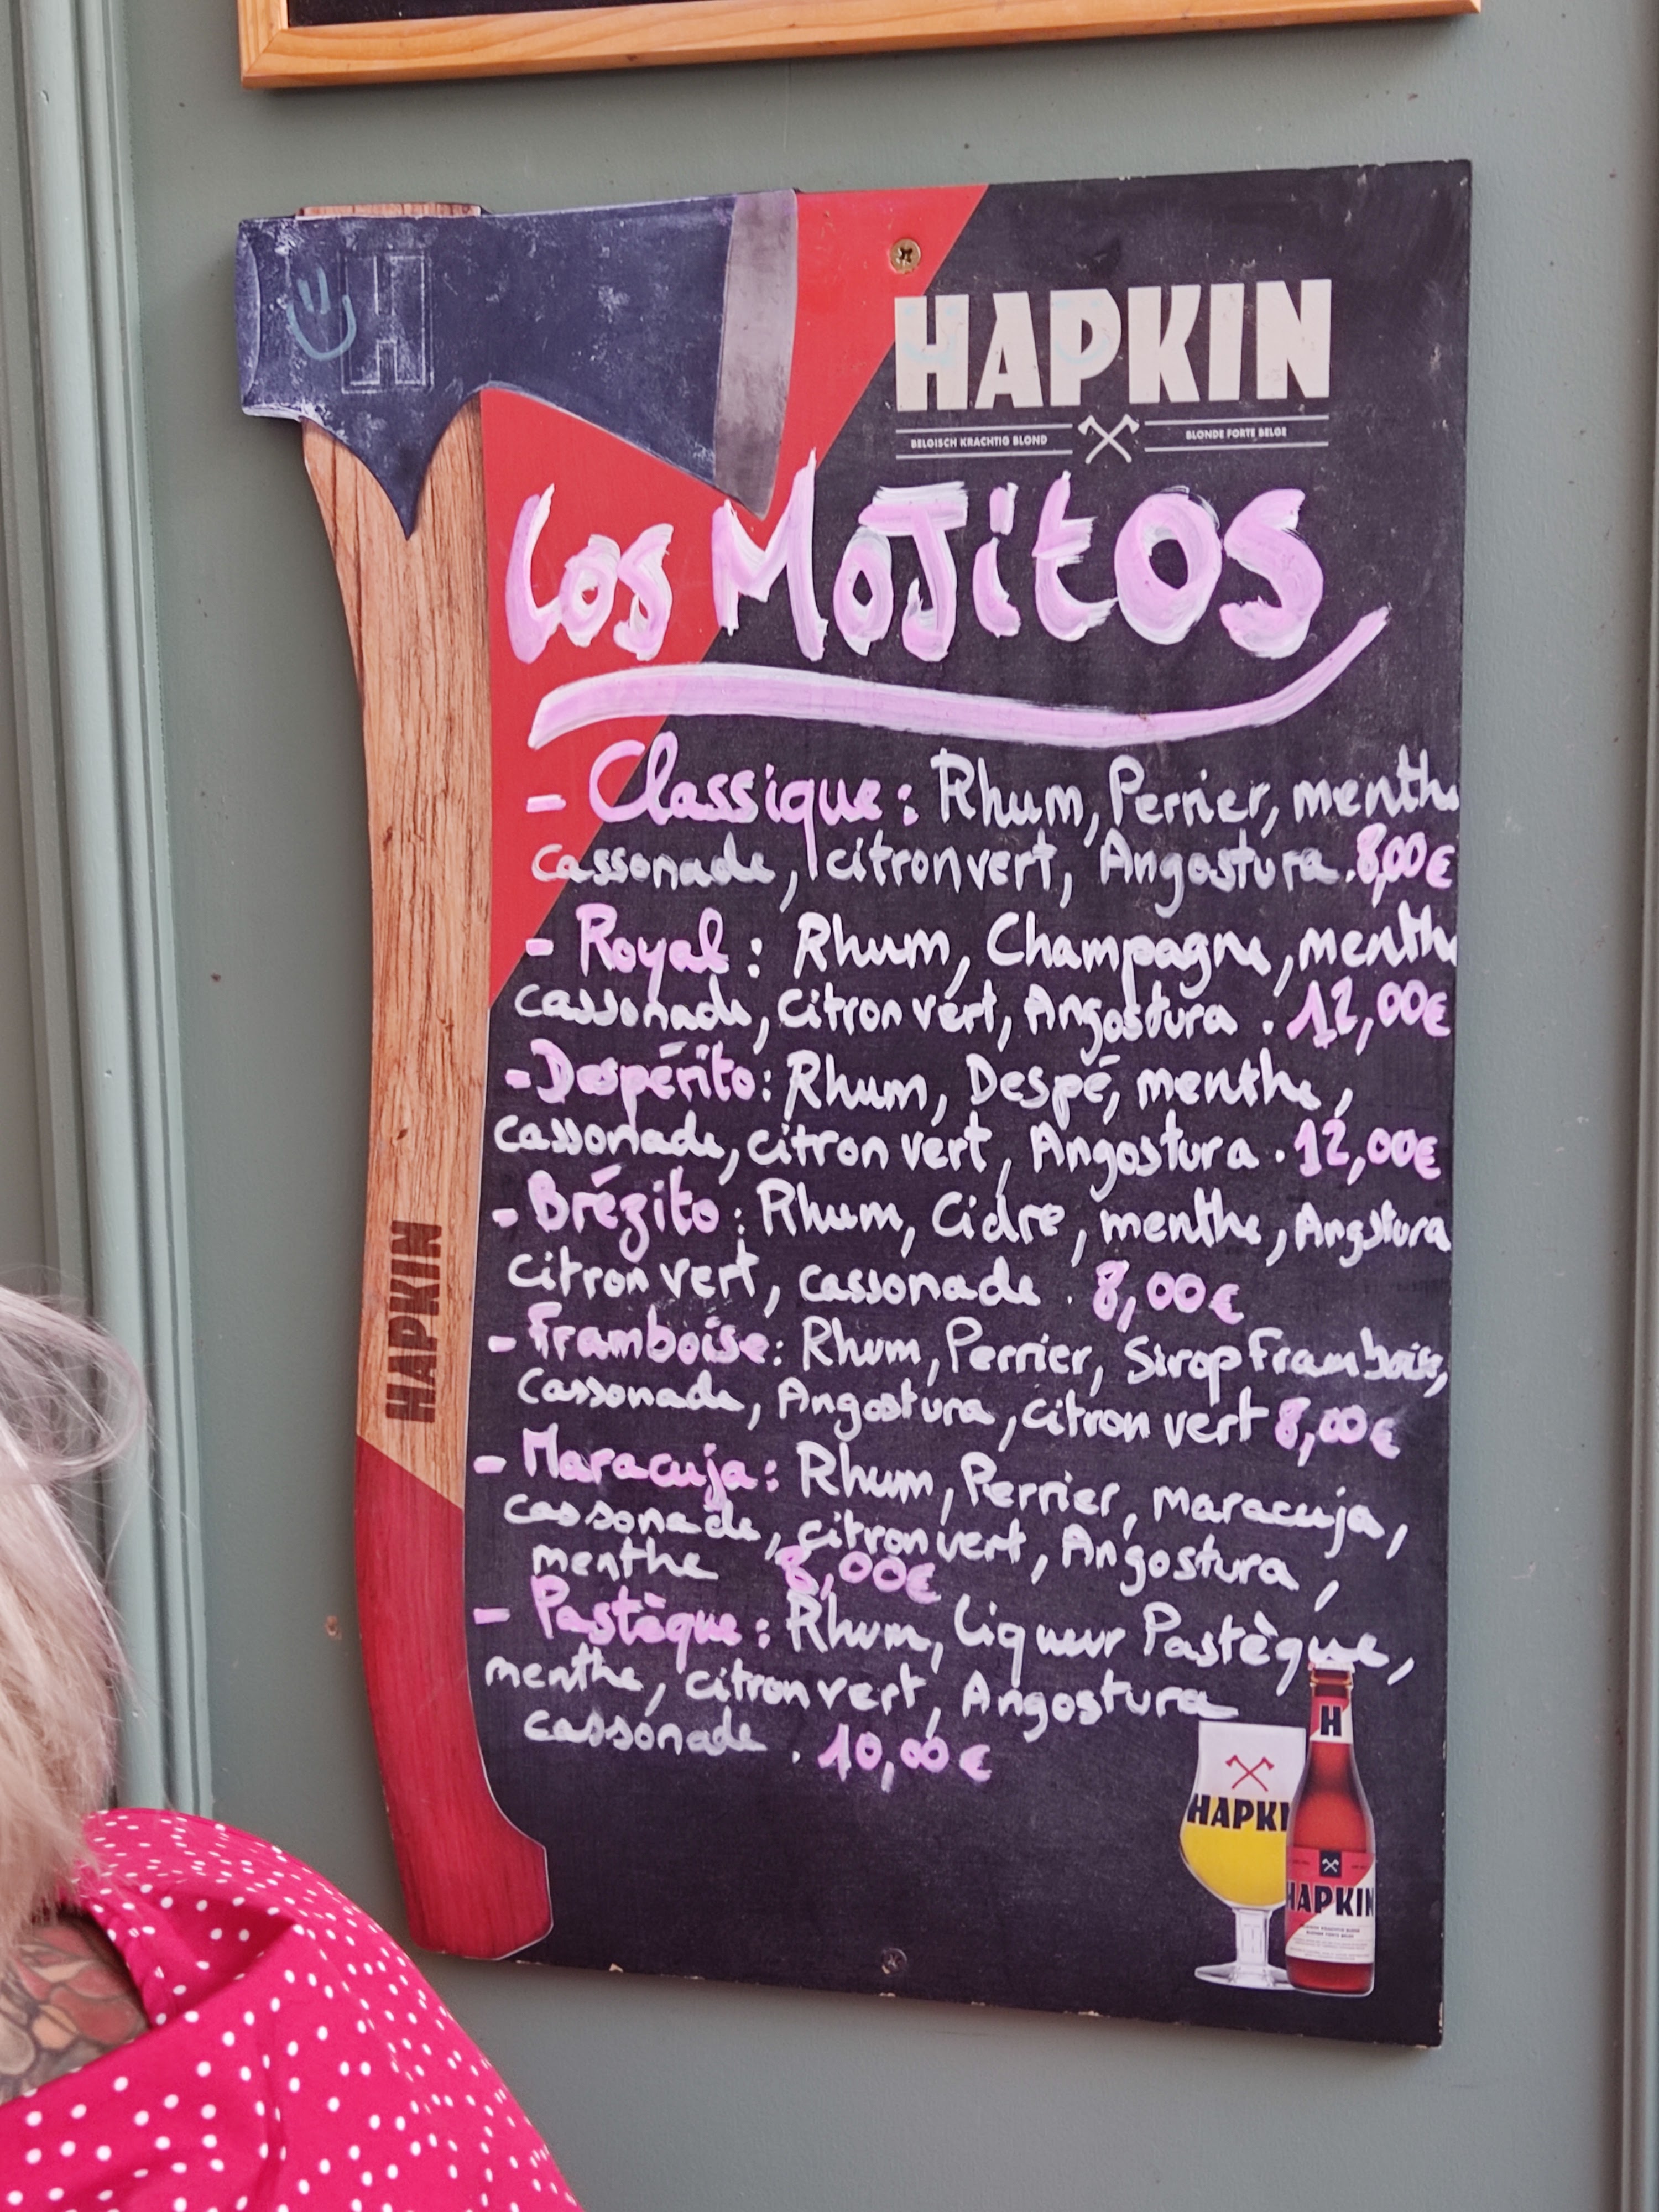 H
HAPKIN
BELGISCH KRACHTIG BLOND
BLONDE FORTE BELGE
Los MoJitos
- Classique : Rhum, Perrier, menthe
cassonade, citron vert, Angostura. 8,00€
- Royal : Rhum, Champagne, menthe
cassonade, citron vert, Angostura . 12,00€
- Despérito : Rhum, Despé, menthe,
cassonade, citron vert, Angostura . 12,00€
- Brézito : Rhum, Cidre, menthe, Angstura
citron vert, cassonade . 8,00€
- Framboise : Rhum, Perrier, Sirop Framboise,
cassonade, Angostura, citron vert 8,00€
- Maracuja : Rhum, Perrier, maracuja,
cassonade, citron vert, Angostura,
menthe 8,00€
- Pastèque : Rhum, Liqueur Pastèque,
menthe, citron vert, Angostura
cassonade . 10,00€
HAPKIN
HAPKI
H
HAPKIN